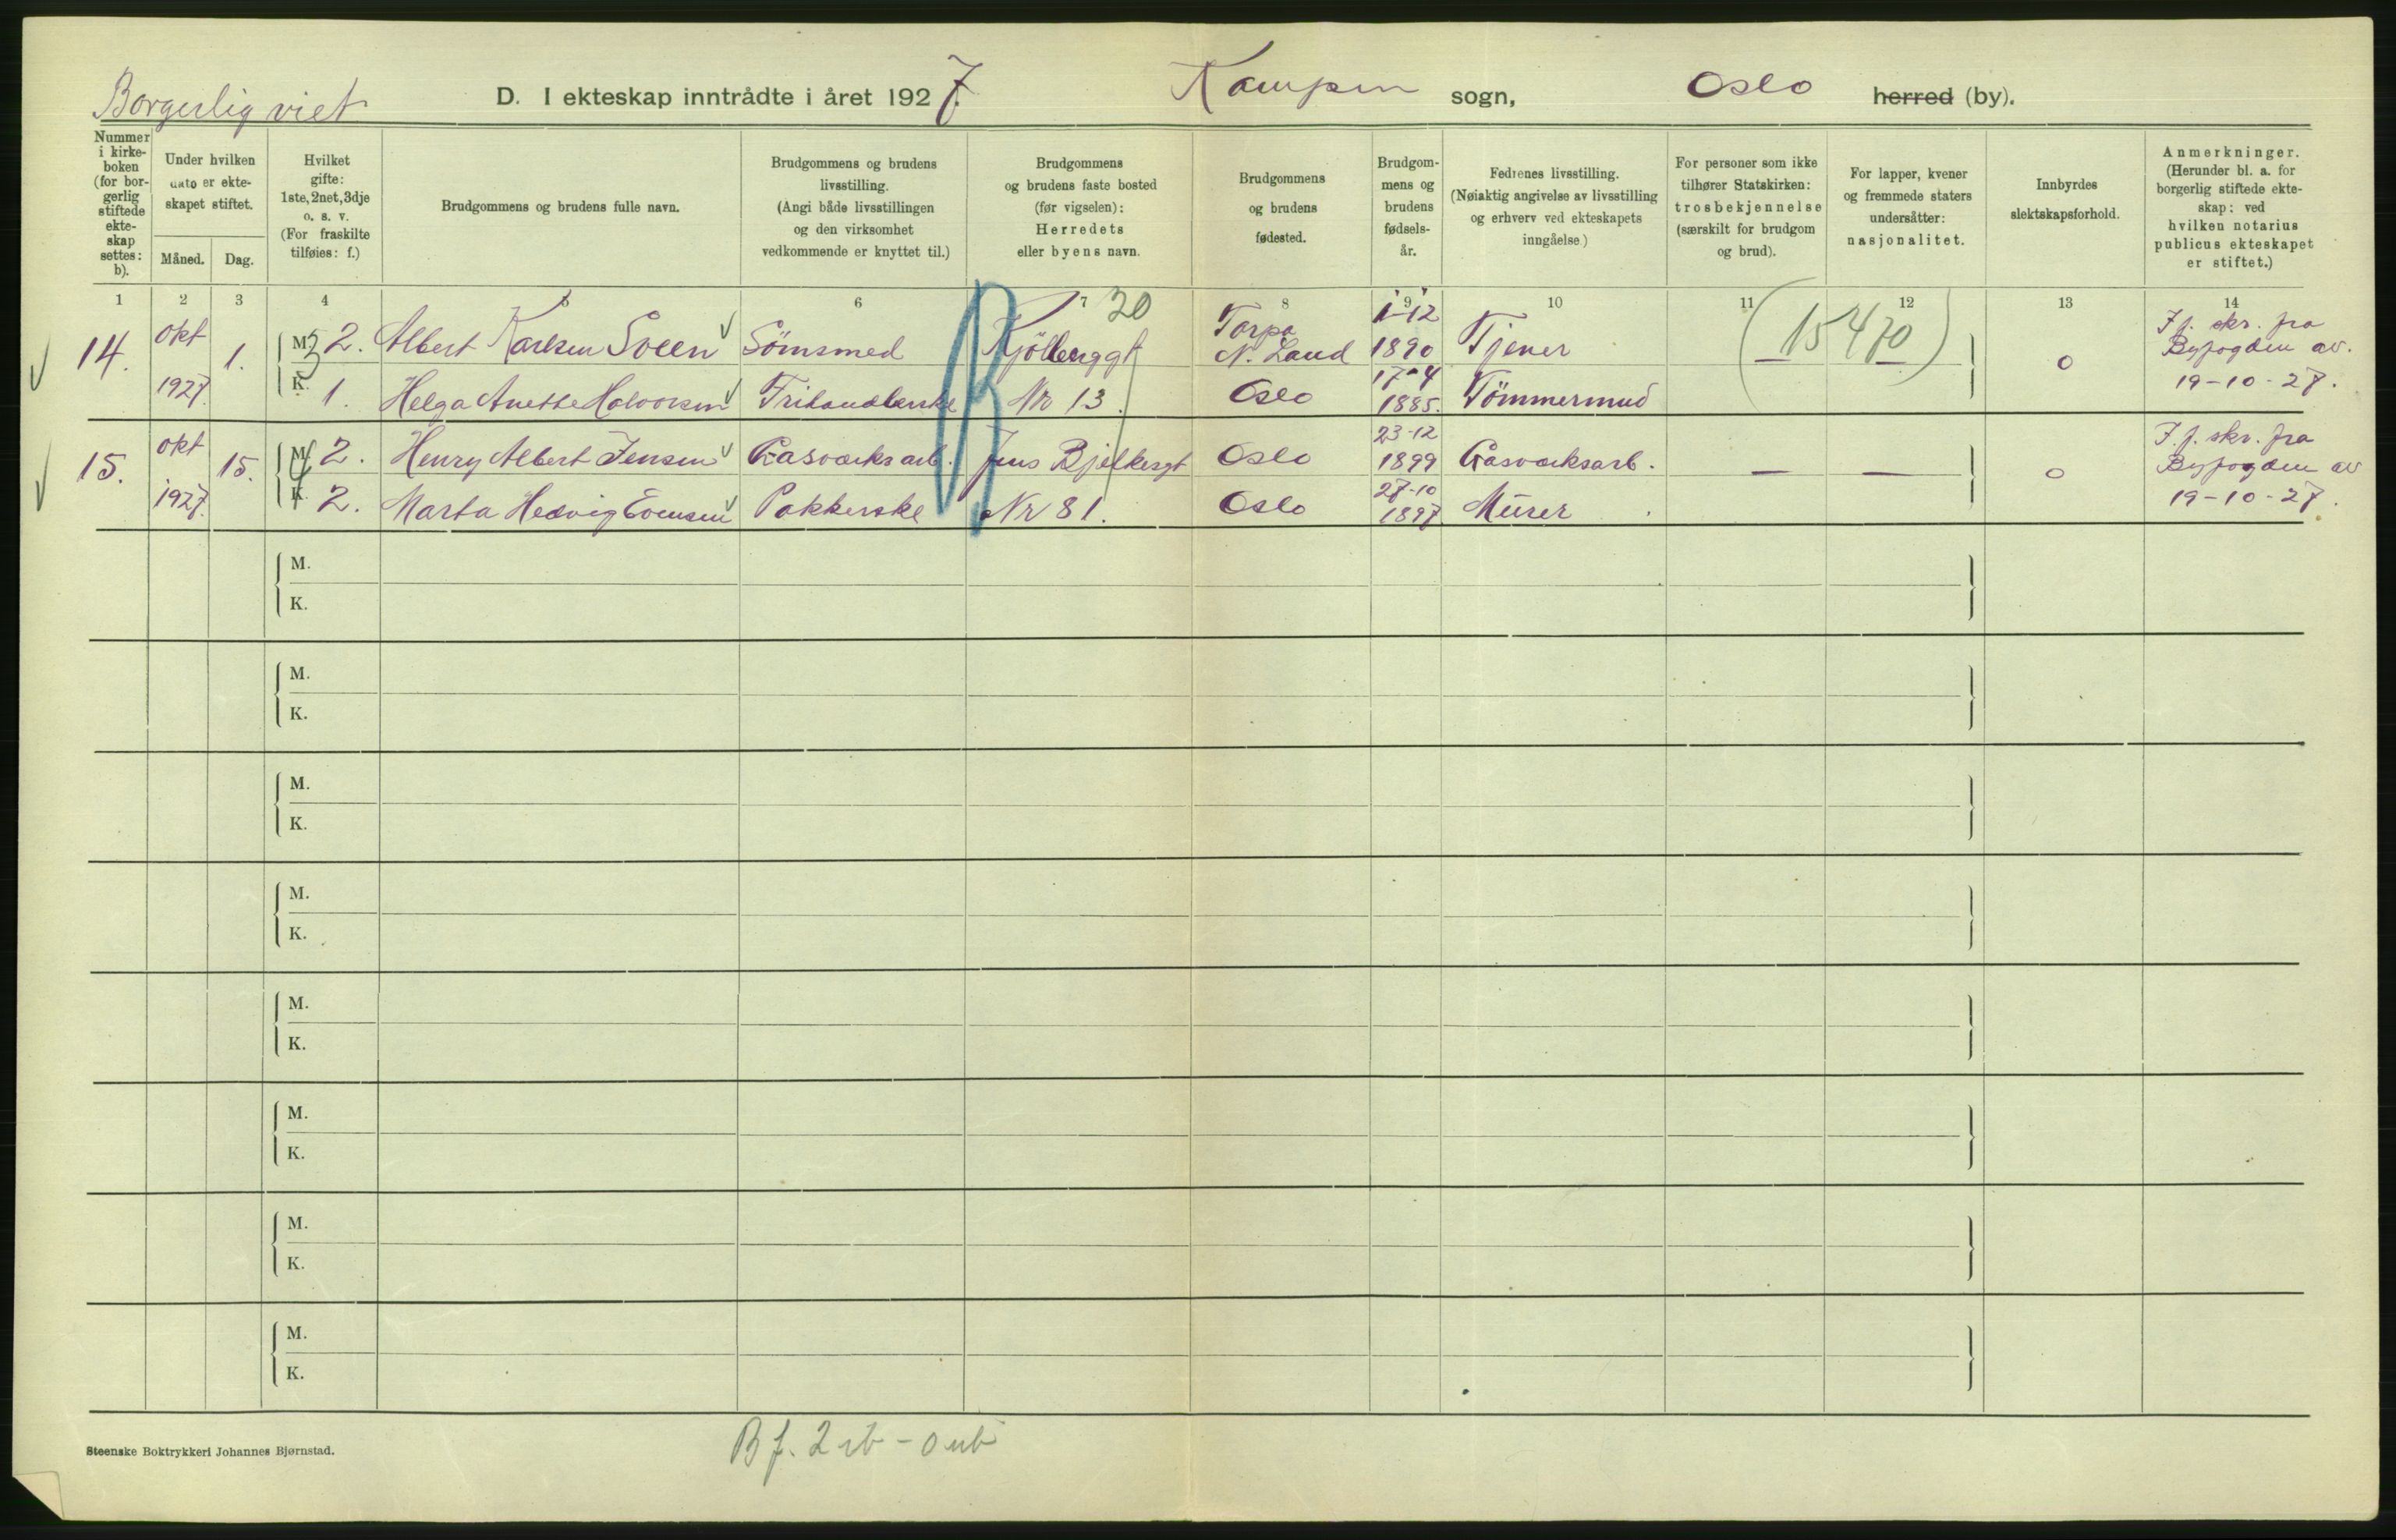 Borgerlig viet
D. I ekteskap inntrådte i året 1927.
Kampen sogn,
Oslo herred (by).
Nummer i kirke- boken (for bor- gerlig stiftede ekte- skap settes: b).
Under hvilken dato er ekte- skapet stiftet.
Måned. Dag.
Hvilket gifte: 1ste, 2net, 3dje o. s. v. (For fraskilte tilføies: f.)
Brudgommens og brudens fulle navn.
Brudgommens og brudens livsstilling. (Angi både livsstillingen og den virksomhet vedkommende er knyttet til.)
Brudgommens og brudens faste bosted (før vigselen): Herredets eller byens navn.
Brudgommens og brudens fødested.
Brudgom- mens og brudens fødsels- år.
Fedrenes livsstilling. (Nøiaktig angivelse av livsstilling og erhverv ved ekteskapets inngåelse.)
For personer som ikke tilhører Statskirken: trosbekjennelse (særskilt for brudgom og brud).
For lapper, kvener og fremmede staters undersåtter: nasjonalitet.
Innbyrdes slektskapsforhold.
Anmerkninger. (Herunder bl. a. for borgerlig stiftede ekte- skap: ved hvilken notarius publicus ekteskapet er stiftet.)
1 2 3 4 5 6 7 8 9 10 11 12 13 14
14. okt 1927. 1. M. 2. Albert Karlsen Soeen Sömsmed Kjölberggt 30 Torpa N. Land 1-12 1890 Tjener (15470) 0 I f. skr. fra Byfogden av. 19-10-27.
K. 1. Helga Anette Halvorsen Frihandlerske Nr 13. Oslo 17-4 1885. Tömmermand
15. okt 1927. 15. M. 2. Henry Albert Jensen Gasværksarb. Jens Bjelkesgt Oslo 23-12 1899 Gasværksarb. — — 0 I. f. skr. fra Byfogden av 19-10-27.
K. 2. Marta Hedvig Evensen Pakkerske Nr 81. Oslo 27-10 1897 Murer
M.
K.
M.
K.
M.
K.
M.
K.
M.
K.
M.
K.
M.
K.
M.
K.
Steenske Boktrykkeri Johannes Bjørnstad.
B f. 2 ib - 0 ub